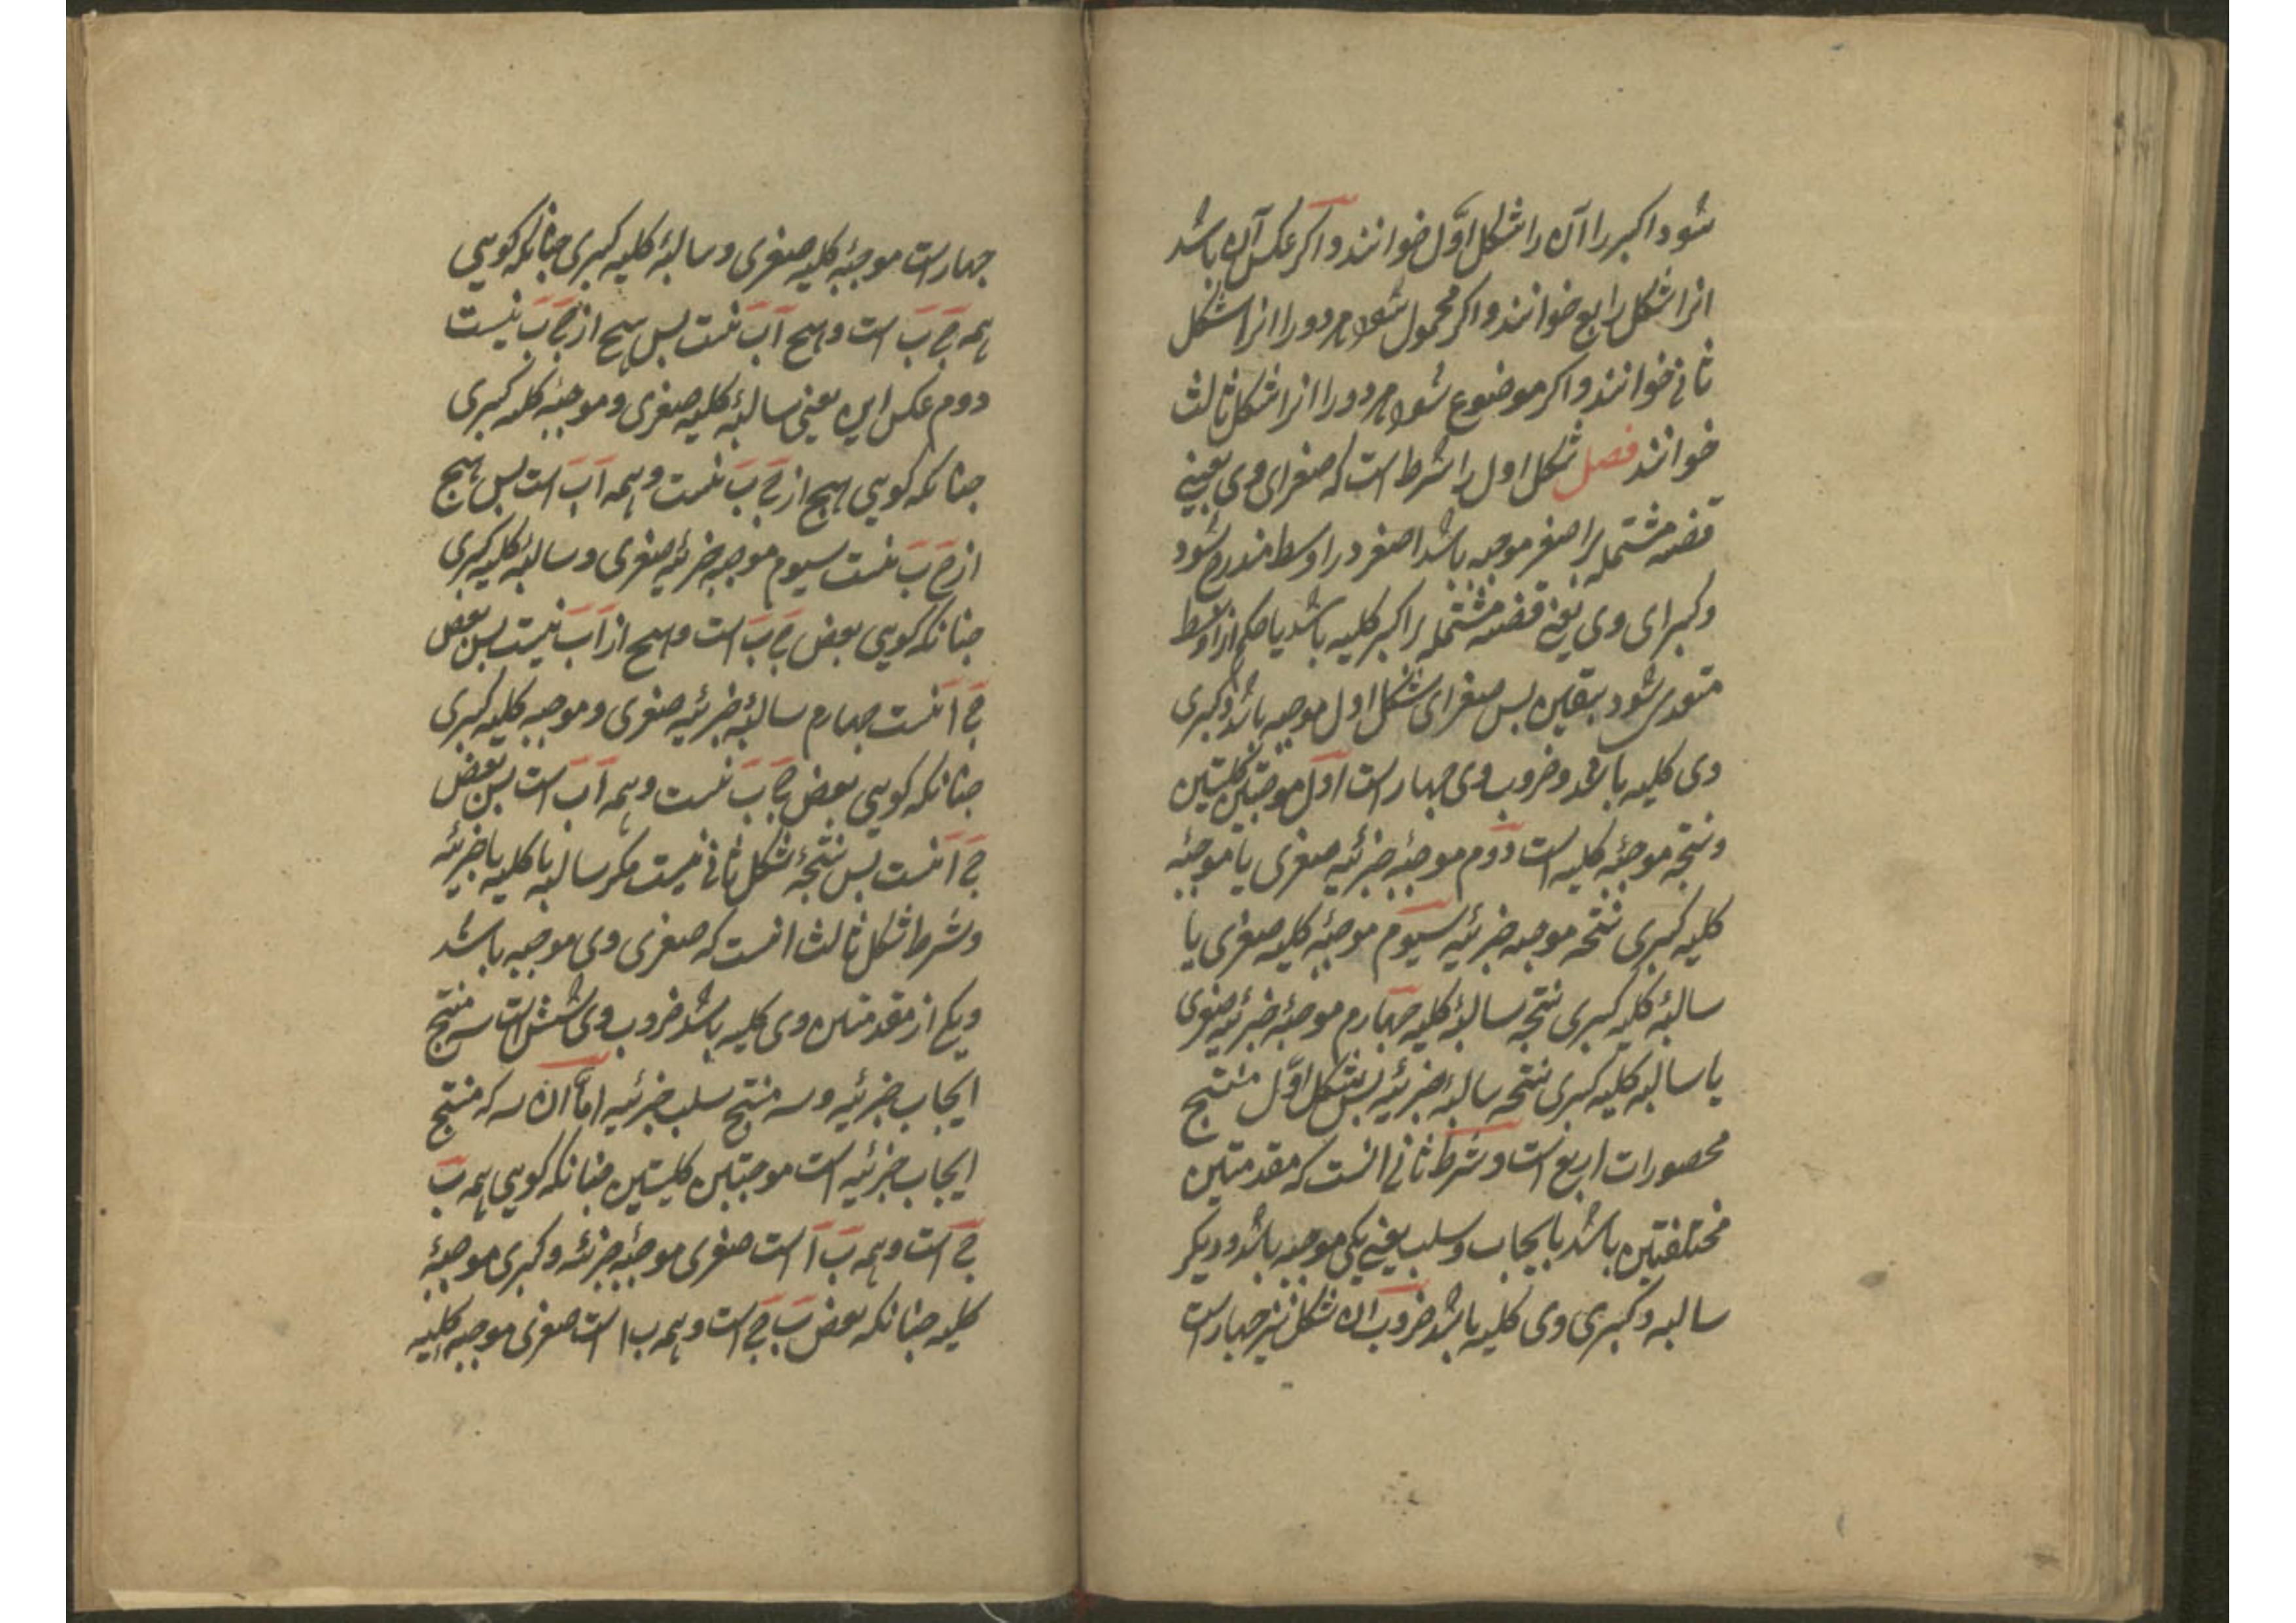 شود اکبر را آن را شکل اوّل خوانند و اکر عکس آن باشد
انرا شکل رابع خوانند و اکر محمول شود هر دو را انرا شکل
ثانی خوانند و اکر موضوع شود هر دو را انرا شکل ثالث
خوانند فصل شکل اول را شرط است که صغرای وی یعنی
قضیه مشتمله بر اصغر موجبه باشد اصغر در اوسط مندرج شود
وکبرای وی یعنی قضیه مشتمله بر اکبر کلیه باشد یا حکم از اوسط
متعدی شود بیقین بس صغرای شکل اول موجبه باشد و کبری
وی کلیه باشد و ضروب وی جهار است اول موجبتین کلیتین
و نتیجه موجبهٔ کلیه است دوم موجبهٔ جزئیه صغری با موجبهٔ
کلیه کبری نتیجه موجبه جزئیه سیوم موجبهٔ کلیه صغری با
سالبهٔ کلیه کبری نتیجه سالبهٔ کلیه جهارم موجبهٔ جزئیه صغری
با سالبه کلیه کبری نتیجه سالبه جزئیه بس شکل اوّل منتج
محصورات اربع است و شرط ثانی انست که مقدمتین
مختلفتین باشد بایجاب و سلب یعنی یکی موجبه باشد و دیکر
سالبه و کبری وی کلیه باشد ضروب ان شکل نیز جهار است
جهار است موجبهٔ کلیه صغری و سالبهٔ کلیه کبری جنانکه کویی
همه ج ب است و هیچ آ ب نیست بس هیچ از ج ب نیست
دوم عکس این یعنی سالبهٔ کلیه صغری و موجبهٔ کلیه کبری
جنانکه کویی هیچ از ج ب نیست و همه آ ب است بس هیچ
از ج ب نیست سیوم موجبه جزئیه صغری و سالبه کلیه کبری
جنانکه کویی بعض ج ب است و هیچ از آ ب نیست بس بعض
ج آ نیست جهارم سالبهٔ جزئیه صغری و موجبه کلیه کبری
جنانکه کویی بعض ج ب نیست و همه آ ب است بس بعض
ج آ نیست بس نتیجهٔ شکل ثانی نیست مکر سالبه یا کلیه یا جزئیه
و شرط شکل ثالث انست که صغری وی موجبه باشد
و یکی از مقدمتین وی کلیه باشد ضروب وی شش است سه منتج
ایجاب جزئیه و سه منتج سلب جزئیه امّا ان سه که منتج
ایجاب جزئیه است موجبتین کلیتین جنانکه کویی همه ب
ج است و همه ب آ است صغری موجبهٔ جزئیه و کبری موجبهٔ
کلیه جنانکه بعض ب ج است و همه ب ا است صغری موجبه کلیه